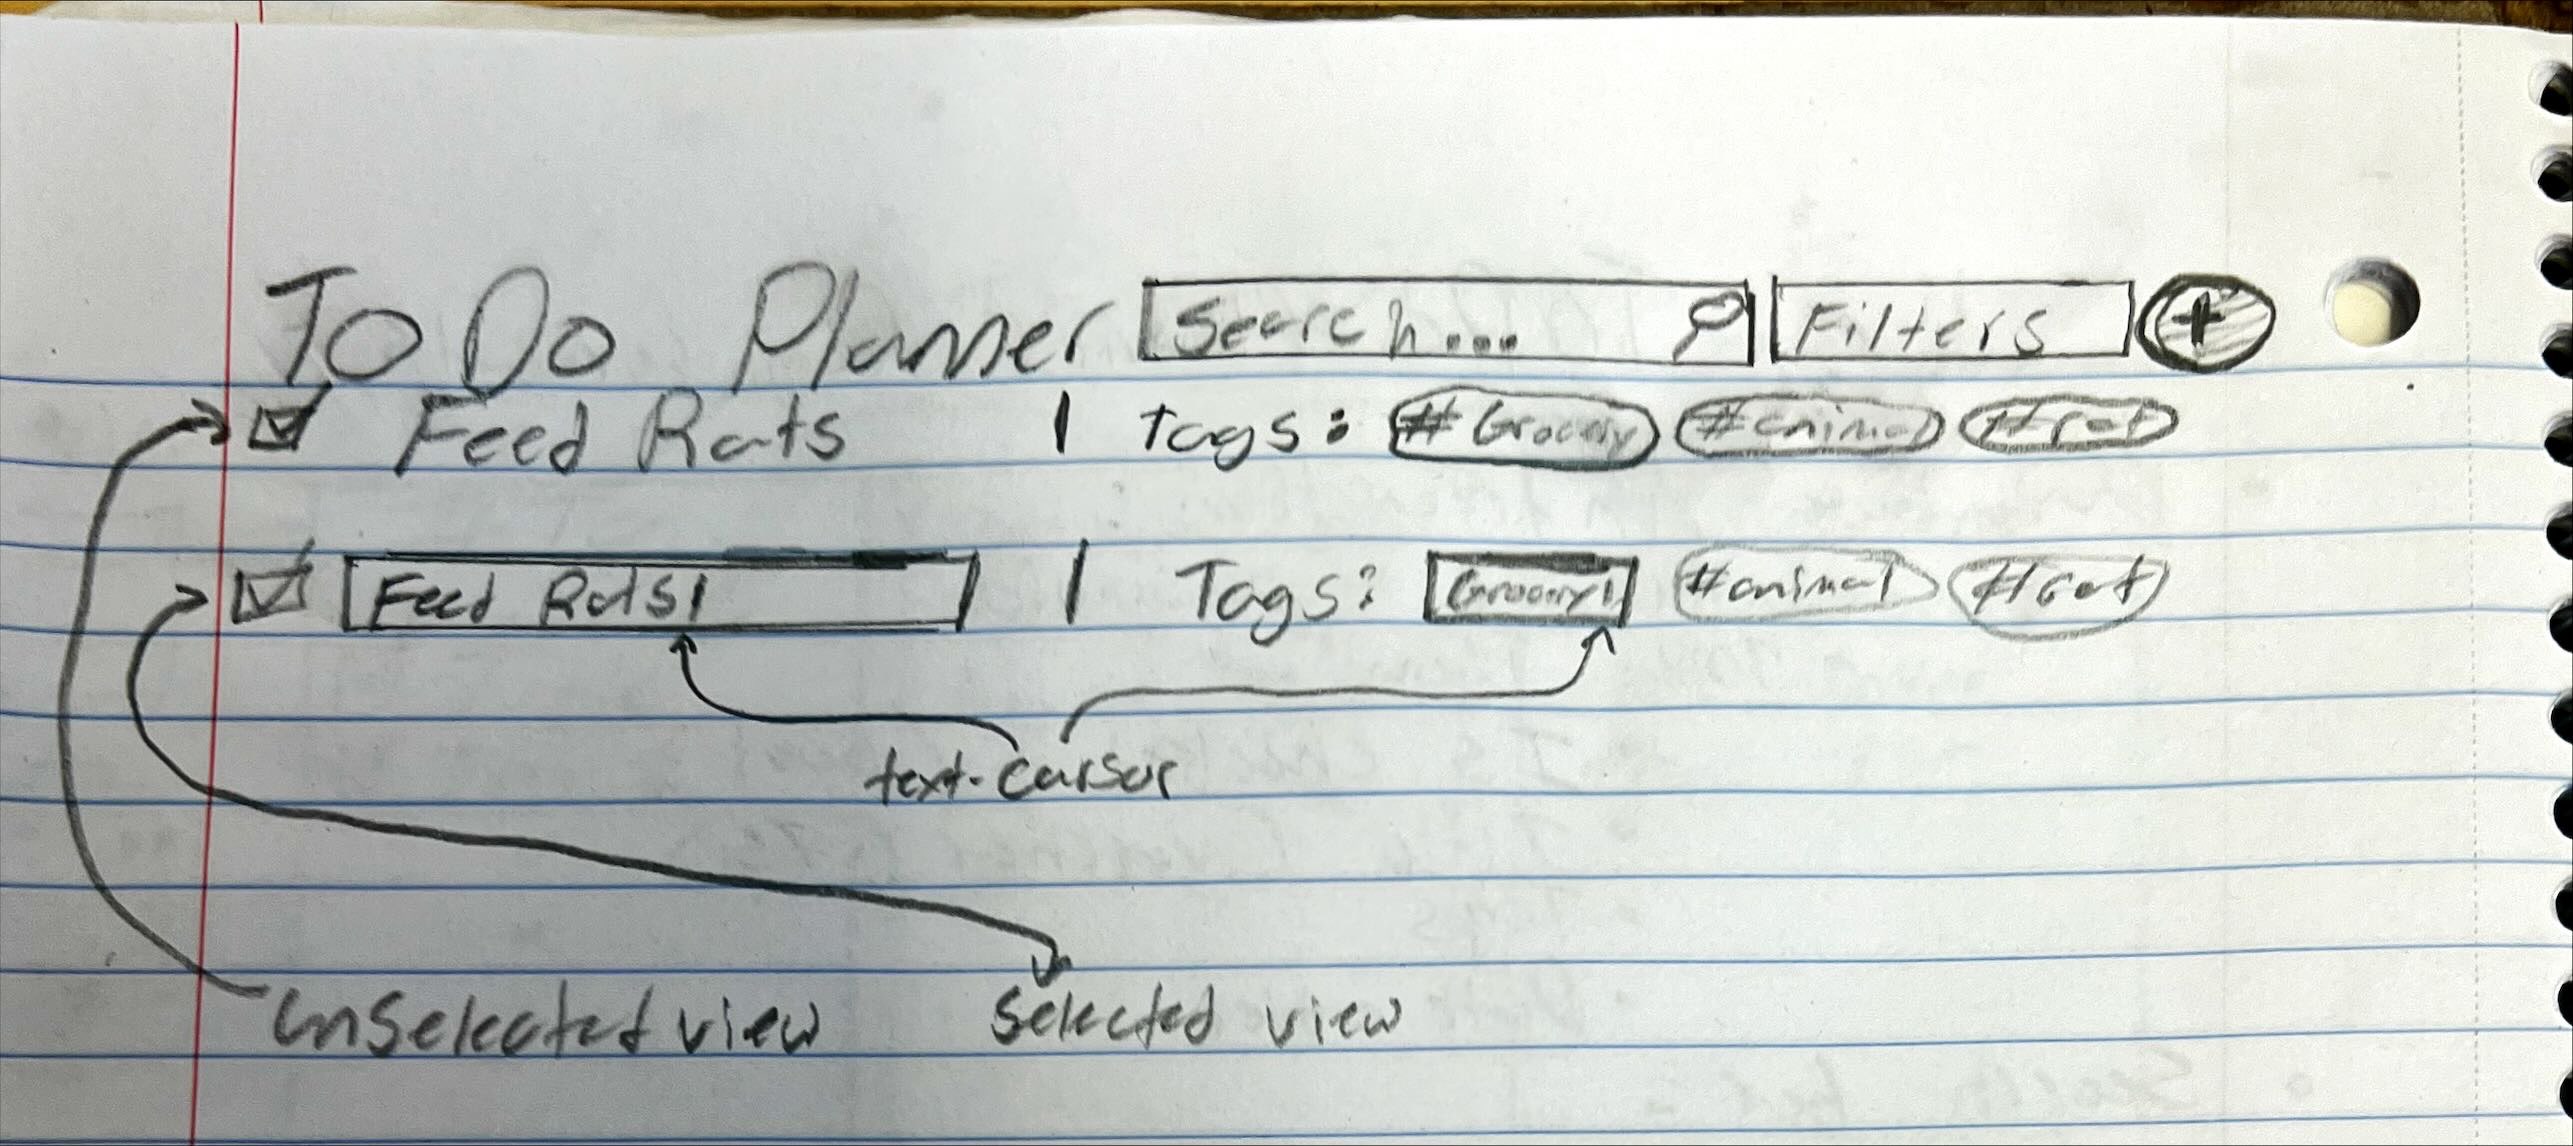 To Do Planner Search... Filters +
Feed Rats | Tags: #Grocery #animal #rat
Feed Rats| | Tags: Grocery| #animal #rat
text-cursor
unselected view selected view